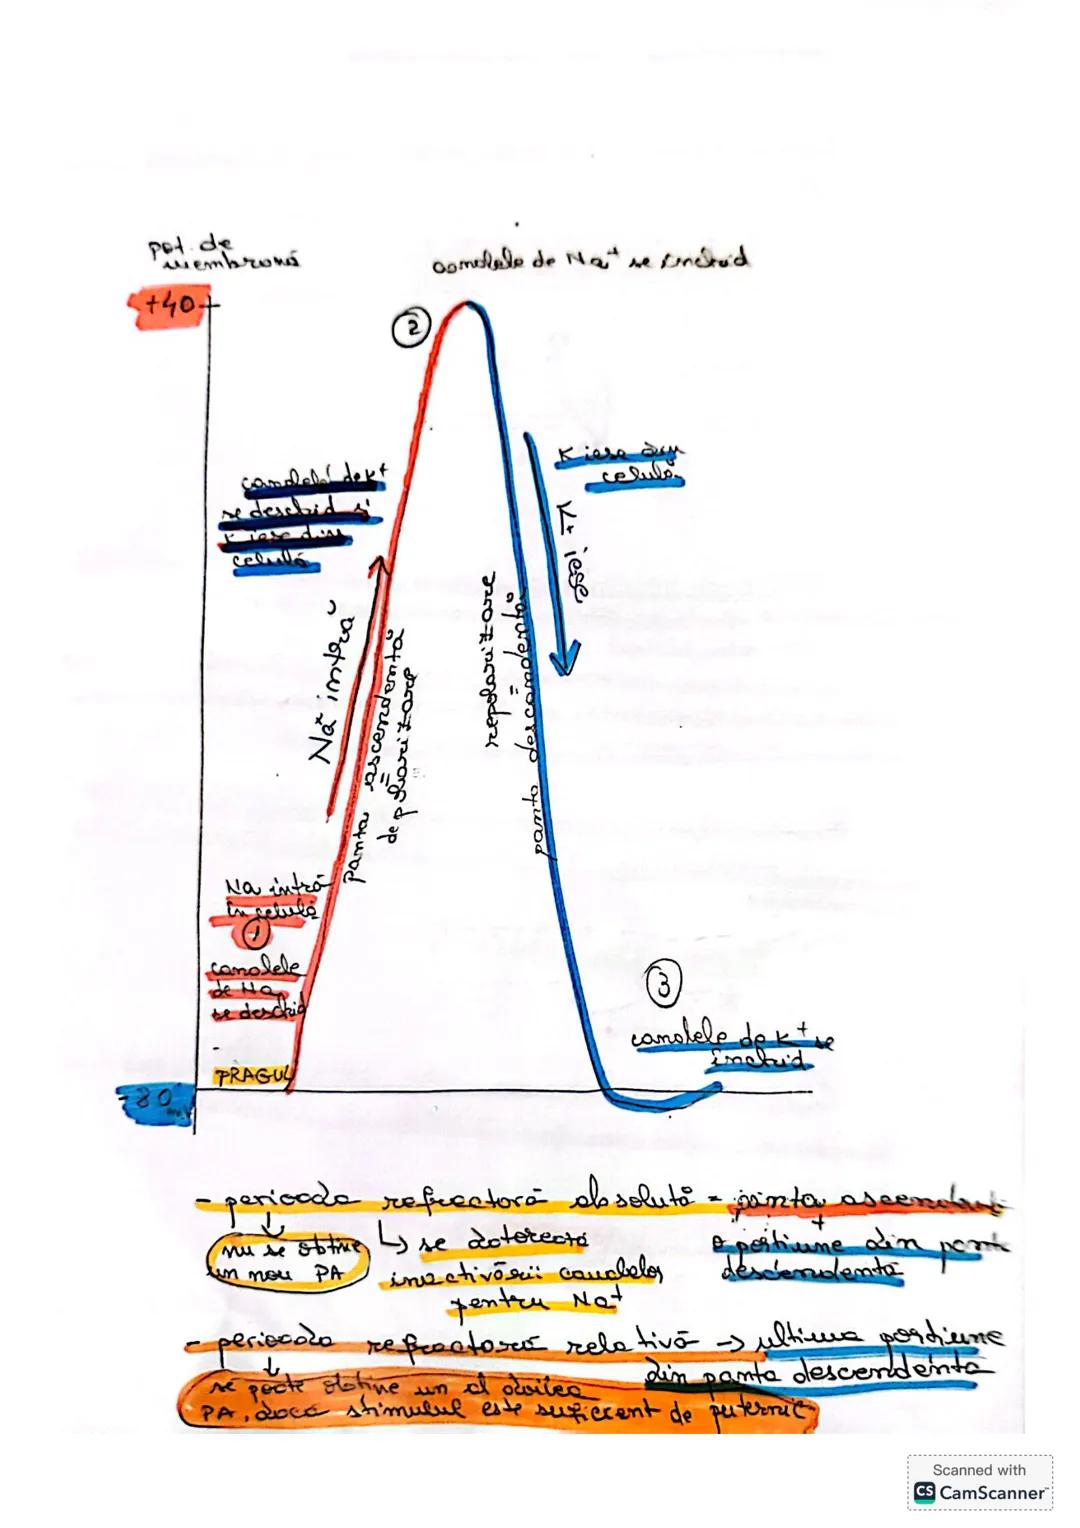 pot. de
membrană
canalele de Na⁺ se închid
+40
2
canalele de K⁺
se deschid și
K iese din
celulă
K iese din
celulă
K⁺ iese
Na⁺ intră
panta ascendentă
depolarizare
repolarizare
panta descendentă
Na intră
în celulă
1
canalele
de Na
se deschid
PRAGUL
-80
3
canalele de K⁺ se
închid
- perioada refractoră absolută = panta ascendentă
+
nu se obtine
un nou PA
↳ se datorează
inactivării canalelor
pentru Na⁺
o porțiune din panta
descendentă
- perioada refractară relativă → ultima porțiune
din panta descendenta
se poate obtine un al doilea
PA, dacă stimulul este suficient de puternic
Scanned with
CS CamScanner